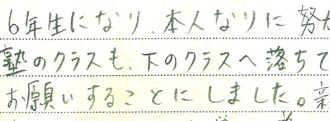 6年生になり、本人なりに努
塾のクラスも、下のクラスへ落ちて
お願いすることにしました。